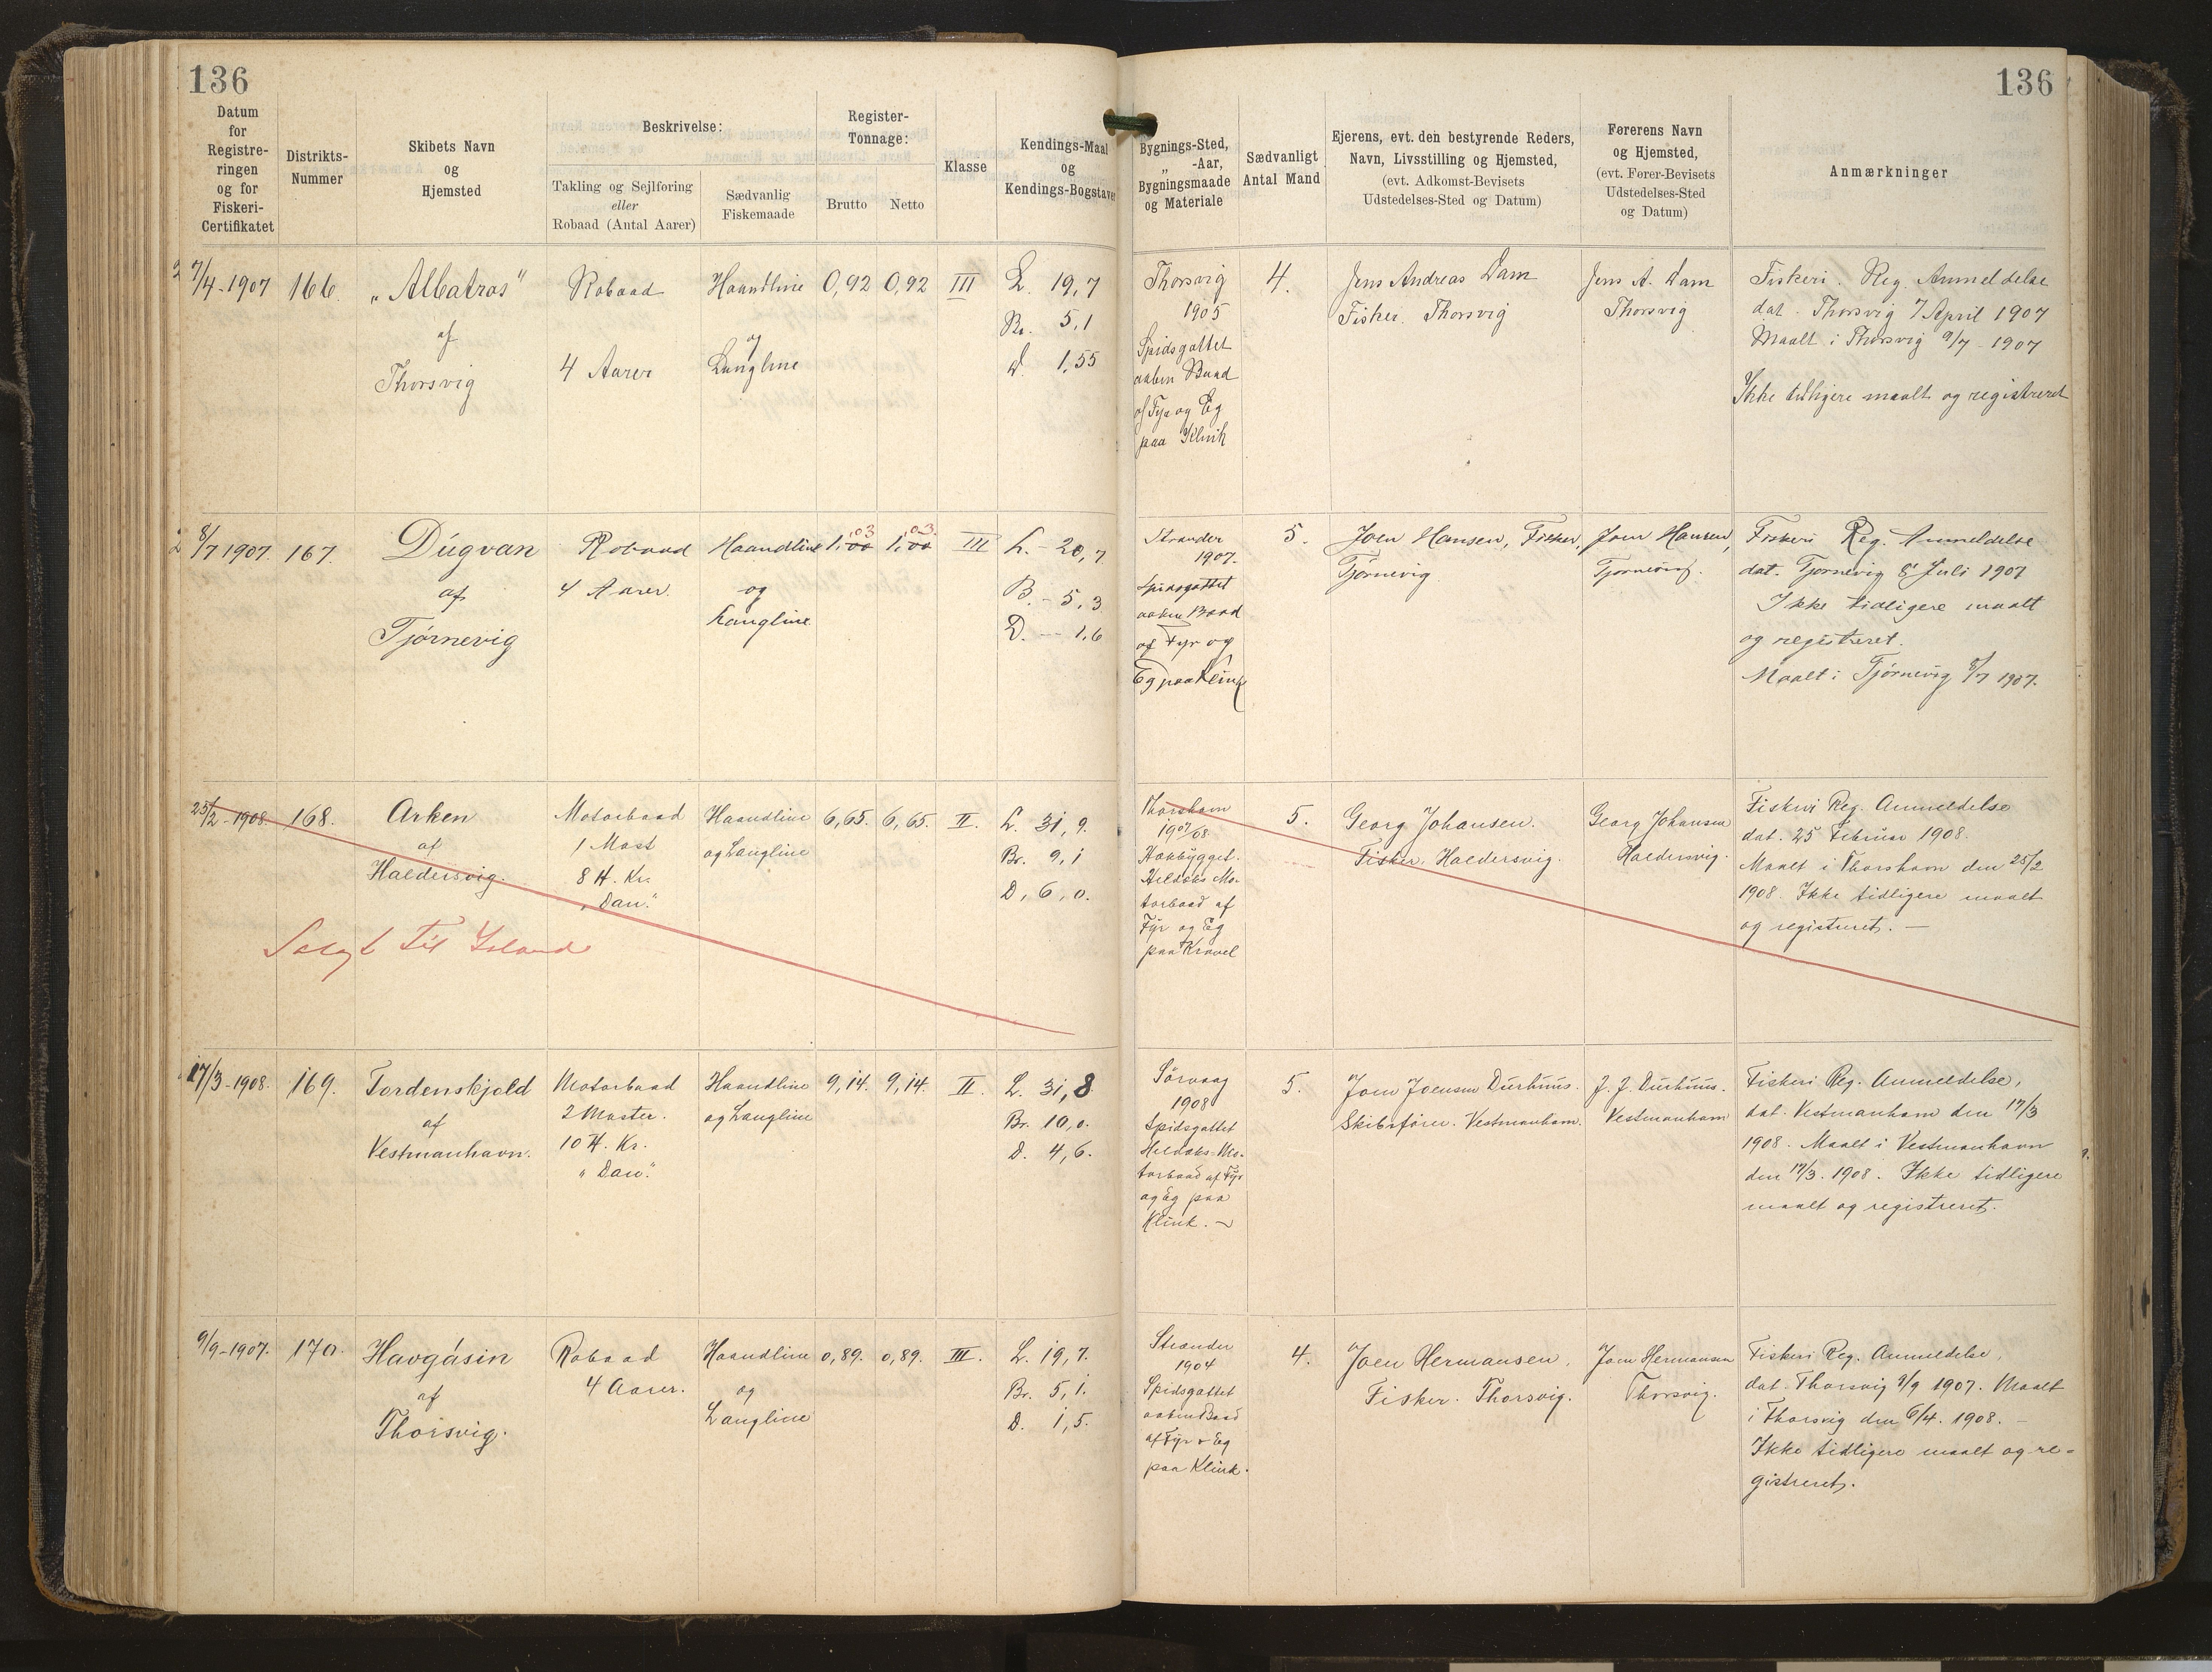 136
136
Datum
for
Registre-
ringen
og for
Fiskeri-
Certifikatet
Distrikts-
Nummer
Skibets Navn
og
Hjemsted
Beskrivelse:
Takling og Sejlføring
eller
Robaad (Antal Aarer)
Sædvanlig
Fiskemaade
Register-
Tonnage:
Brutto
Netto
Klasse
Kendings-Maal
og
Kendings-Bogstaver
Bygnings-Sted,
„ -Aar,
Bygningsmaade
og Materiale
Sædvanligt
Antal Mand
Ejerens, evt. den bestyrende Reders,
Navn, Livsstilling og Hjemsted,
(evt. Adkomst-Bevisets
Udstedelses-Sted og Datum)
Førerens Navn
og Hjemsted,
(evt. Fører-Bevisets
Udstedelses-Sted
og Datum)
Anmærkninger
7/4-1907
166.
„Albatros"
af
Thorsvig
Robaad
4 Aarer
Haandline
og
Langline
0,92
0,92
III
L. 19,7
Br. 5,1
D. 1,55
Thorsvig
1905
Spidsgattet
aaben Baad
af Fyr og Eg
paa Klink
4.
Jens Andreas Dam
Fisker. Thorsvig
Jens A. Dam
Thorsvig
Fiskeri. Reg. Anmeldelse
dat. Thorsvig 7 April 1907
Maalt i Thorsvig 9/7-1907
Ikke tidligere maalt og registreret
8/7 1907.
167.
Dúgvan
af
Tjørnevig
Robaad
4 Aarer.
Haandline
og
Langline
1,00 ,03
1,00 ,03
III
L. - 20,7
B. - 5,3
D. -- 1,6
Strander
1907.
Spidsgattet
aaben Baad
af Fyr og
Eg paa Klink
5.
Joen Hansen, Fisker,
Tjørnevig
Joen Hansen,
Tjørnevig.
Fiskeri Reg. Anmeldelse
dat. Tjørnevig 8' Juli 1907
Ikke tidligere maalt
og registreret.
Maalt i Tjørnevig 8/7 1907.
25/2-1908.
168.
Arken
af
Haldersvig.
Salgt til Island
Motorbaad
1 Mast
8 H. Kr.
„Dan."
Haandline
og Langline
6,65.
6,65.
II.
L. 31,9.
Br. 9,1
D, 6,0.
Thorshavn
1907/08.
Hækbygget
Heldæks Mo-
torbaad af
Fyr og Eg
paa Kravel
5.
Georg Johansen.
Fisker. Haldersvig.
Georg Johansen
Haldersvig.
Fiskeri Reg. Anmeldelse
dat. 25 Februar 1908.
Maalt i Thorshavn den 25/2
1908. Ikke tidligere maalt
og registreret. —
17/3-1908.
169.
Tordenskjold
af
Vestmanhavn.
Motorbaad
2 Master.
10 H. Kr.
„Dan."
Haandline
og Langline
9,14.
9,14.
II.
L. 31,8
Br. 10,0.
D. 4,6.
Sørvaag
1908
Spidsgattet
Heldæks-Mo-
torbaad af Fyr
og Eg paa
Klink. ~
5.
Joen Joensen Durhuus.
Skibsfører. Vestmanhavn.
J. J. Durhuus.
Vestmanhavn
Fiskeri Reg. Anmeldelse,
dat. Vestmanhavn den 17/3
1908. Maalt i Vestmanhavn
den 17/3. 1908. Ikke tidligere
maalt og registreret.
9/9-1907.
170.
Havgásin
af
Thorsvig.
Robaad
4 Aarer.
Haandline
og
Langline
0,89.
0,89.
III.
L. 19,7.
Br. 5,1.
D. 1,5.
Strander
1904
Spidsgattet
aaben Baad
af Fyr & Eg
paa Klink.
4.
Joen Hermansen.
Fisker. Thorsvig.
Joen Hermansen
Thorsvig.
Fiskeri Reg. Anmeldelse,
dat. Thorsvig 9/9 1907. Maalt
i Thorsvig den 6/4. 1908. —
Ikke tidligere maalt og re-
gistreret.